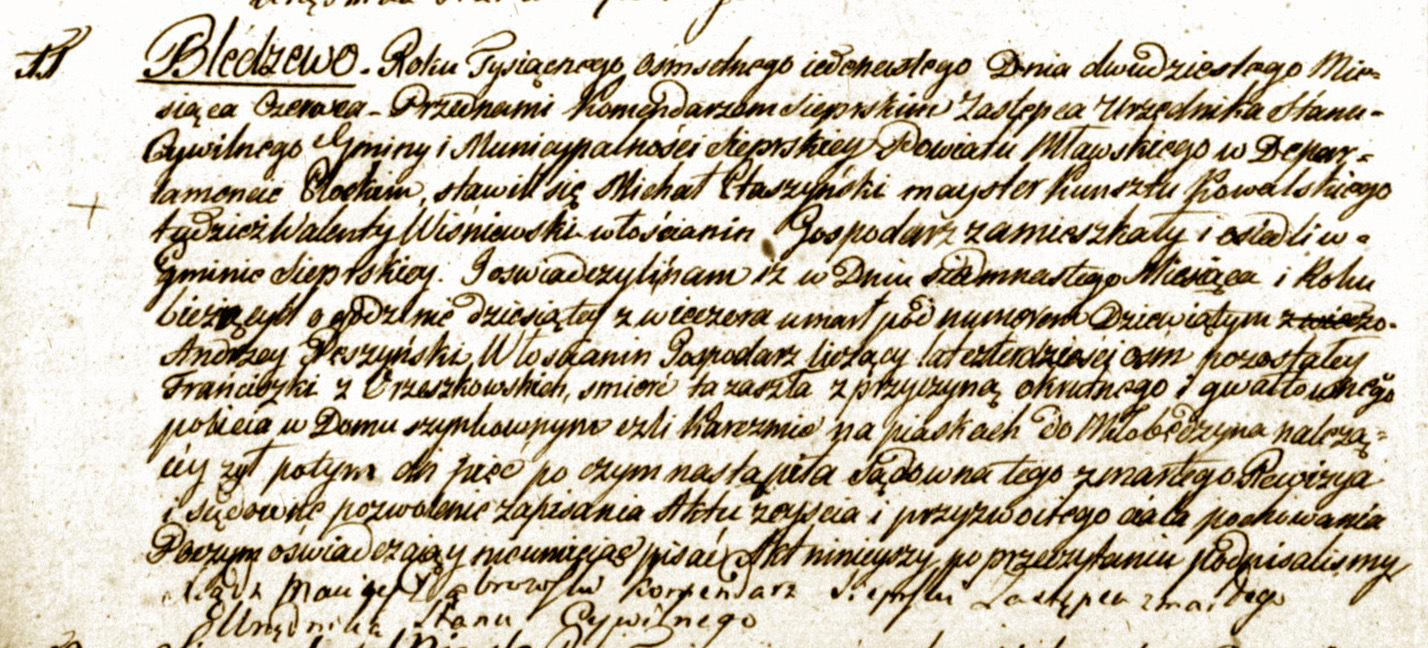 11 Bledzewo. Roku Tysiącnego ośmsetnego iedenastego Dnia dwudziestego Mie=
siąca Czerwca - Przednami Komendarzem Sieprskim Zastępca Urzędnika Stanu-
Cywilnego Gminy i Municypalności Sieprskiey Powiatu Mławskiego w Depar=
tamencie Płockim, stawili się Michał Ptaszyński mayster kunsztu Kowalskiego
tudzież Walenty Wiśniewski włościanin Gospodarz zamieszkały i osiedli w-
Gminie Sieprskiey. I oświadczyli nam iż w Dniu siedmnastego Miesiąca i Roku
bieżących o godzinie dziesiątey z wieczora umarł pod numerem Dziewiątym
Andrzey Peszyński Włościanin Gospodarz liczący lat czterdzieści osm pozostałey
Franciszki z Orzeszkowskich, smierć ta zaszła z przyczyną okrutnego i gwałtownego
pobicia w Domu szynkownym czli Karczmie na piaskach do Miłobędzyna należą=
céy żył potym dni pięć po czym nastąpiła Sądowna tego zmarłego Rewizya
i sądowne pozwolenie zapisania Aktu zeyscia i przyzwoitego ciała pochowania
Poczym oświadczaiący nieumieiąc pisać Akt ninieyszy po przeczytaniu Podpisalismy
Xiądz Dąbrowski Komendarz Sieprski Zastępca
Urzędnika Stanu Cywilnego